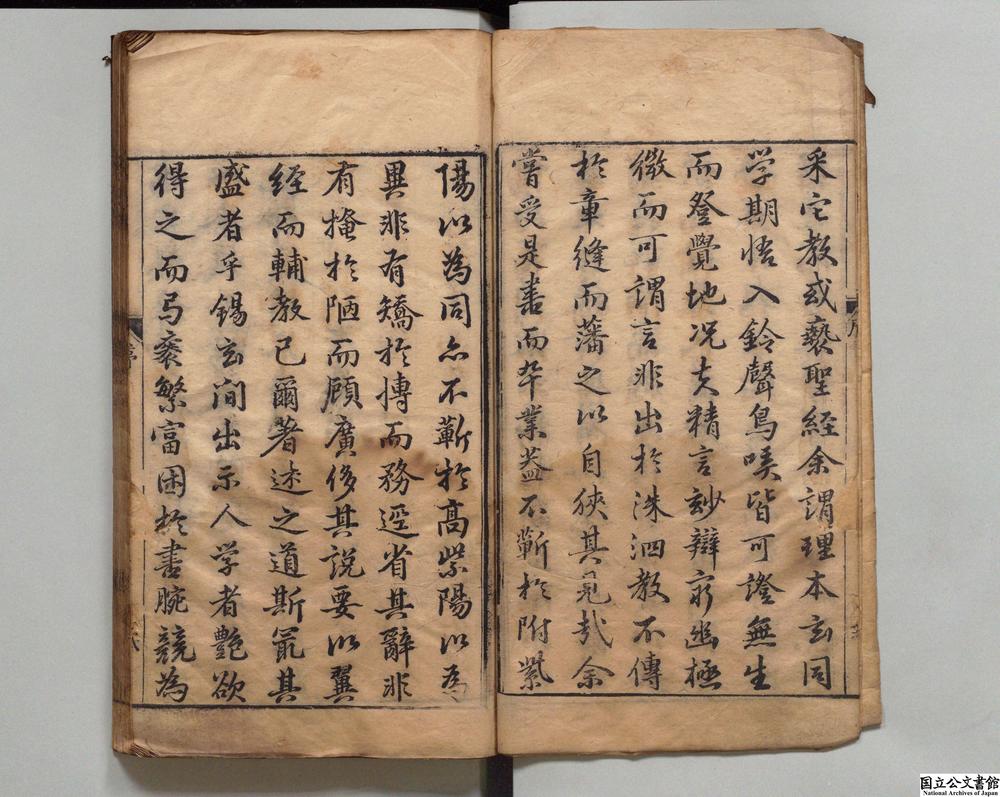 采它教或褻聖經余謂理本玄同
学期悟入鈴聲鳥唳皆可證無生
而登覺地况夫精言妙辯窮幽極
微而可謂言非出於洙泗教不傳
於章縫而藩之以自狹其見哉余
嘗受是書而卒業蓋不蘄於附紫
陽以為同亦不蘄於高紫陽以為
異非有矯於博而務逕省其辭非
有掩於陋而顧廣侈其說要以翼
経而輔教已爾著述之道斯冣其
盛者乎錫玄間出示人学者艶欲
得之而㢧袠繁富困於書腕競為
国立公文書館
National Archives of Japan